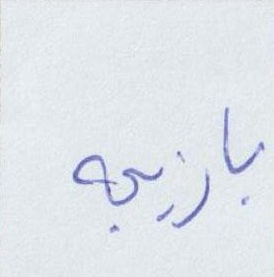 بازیجه